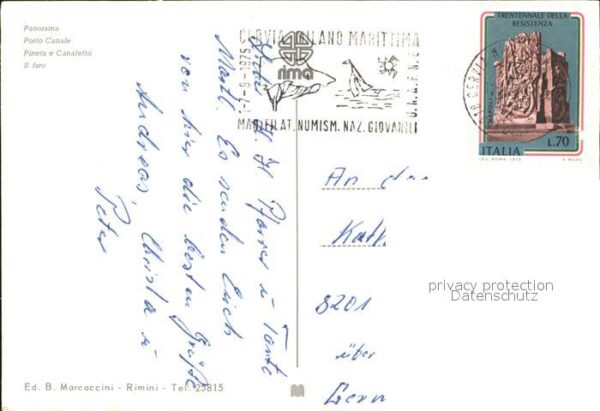 Panorama
Porto Canale
Pineta e Canaletto
Il faro
CERVIA MILANO MARITTIMA
rima
-7-9-1975
MAN. FILAT. NUMISM. NAZ. GIOVANILI
TRENTENNALE DELLA
RESISTENZA
ITALIA
L.70
H. H. Pfarrer u Tante
Es senden Euch
von hier die besten Grüße
Andreas, Christa u
Peter
An das
Kath.
8201
über
privacy protection
Datenschutz
Ed. B. Marcaccini - Rimini - Tel. 23815